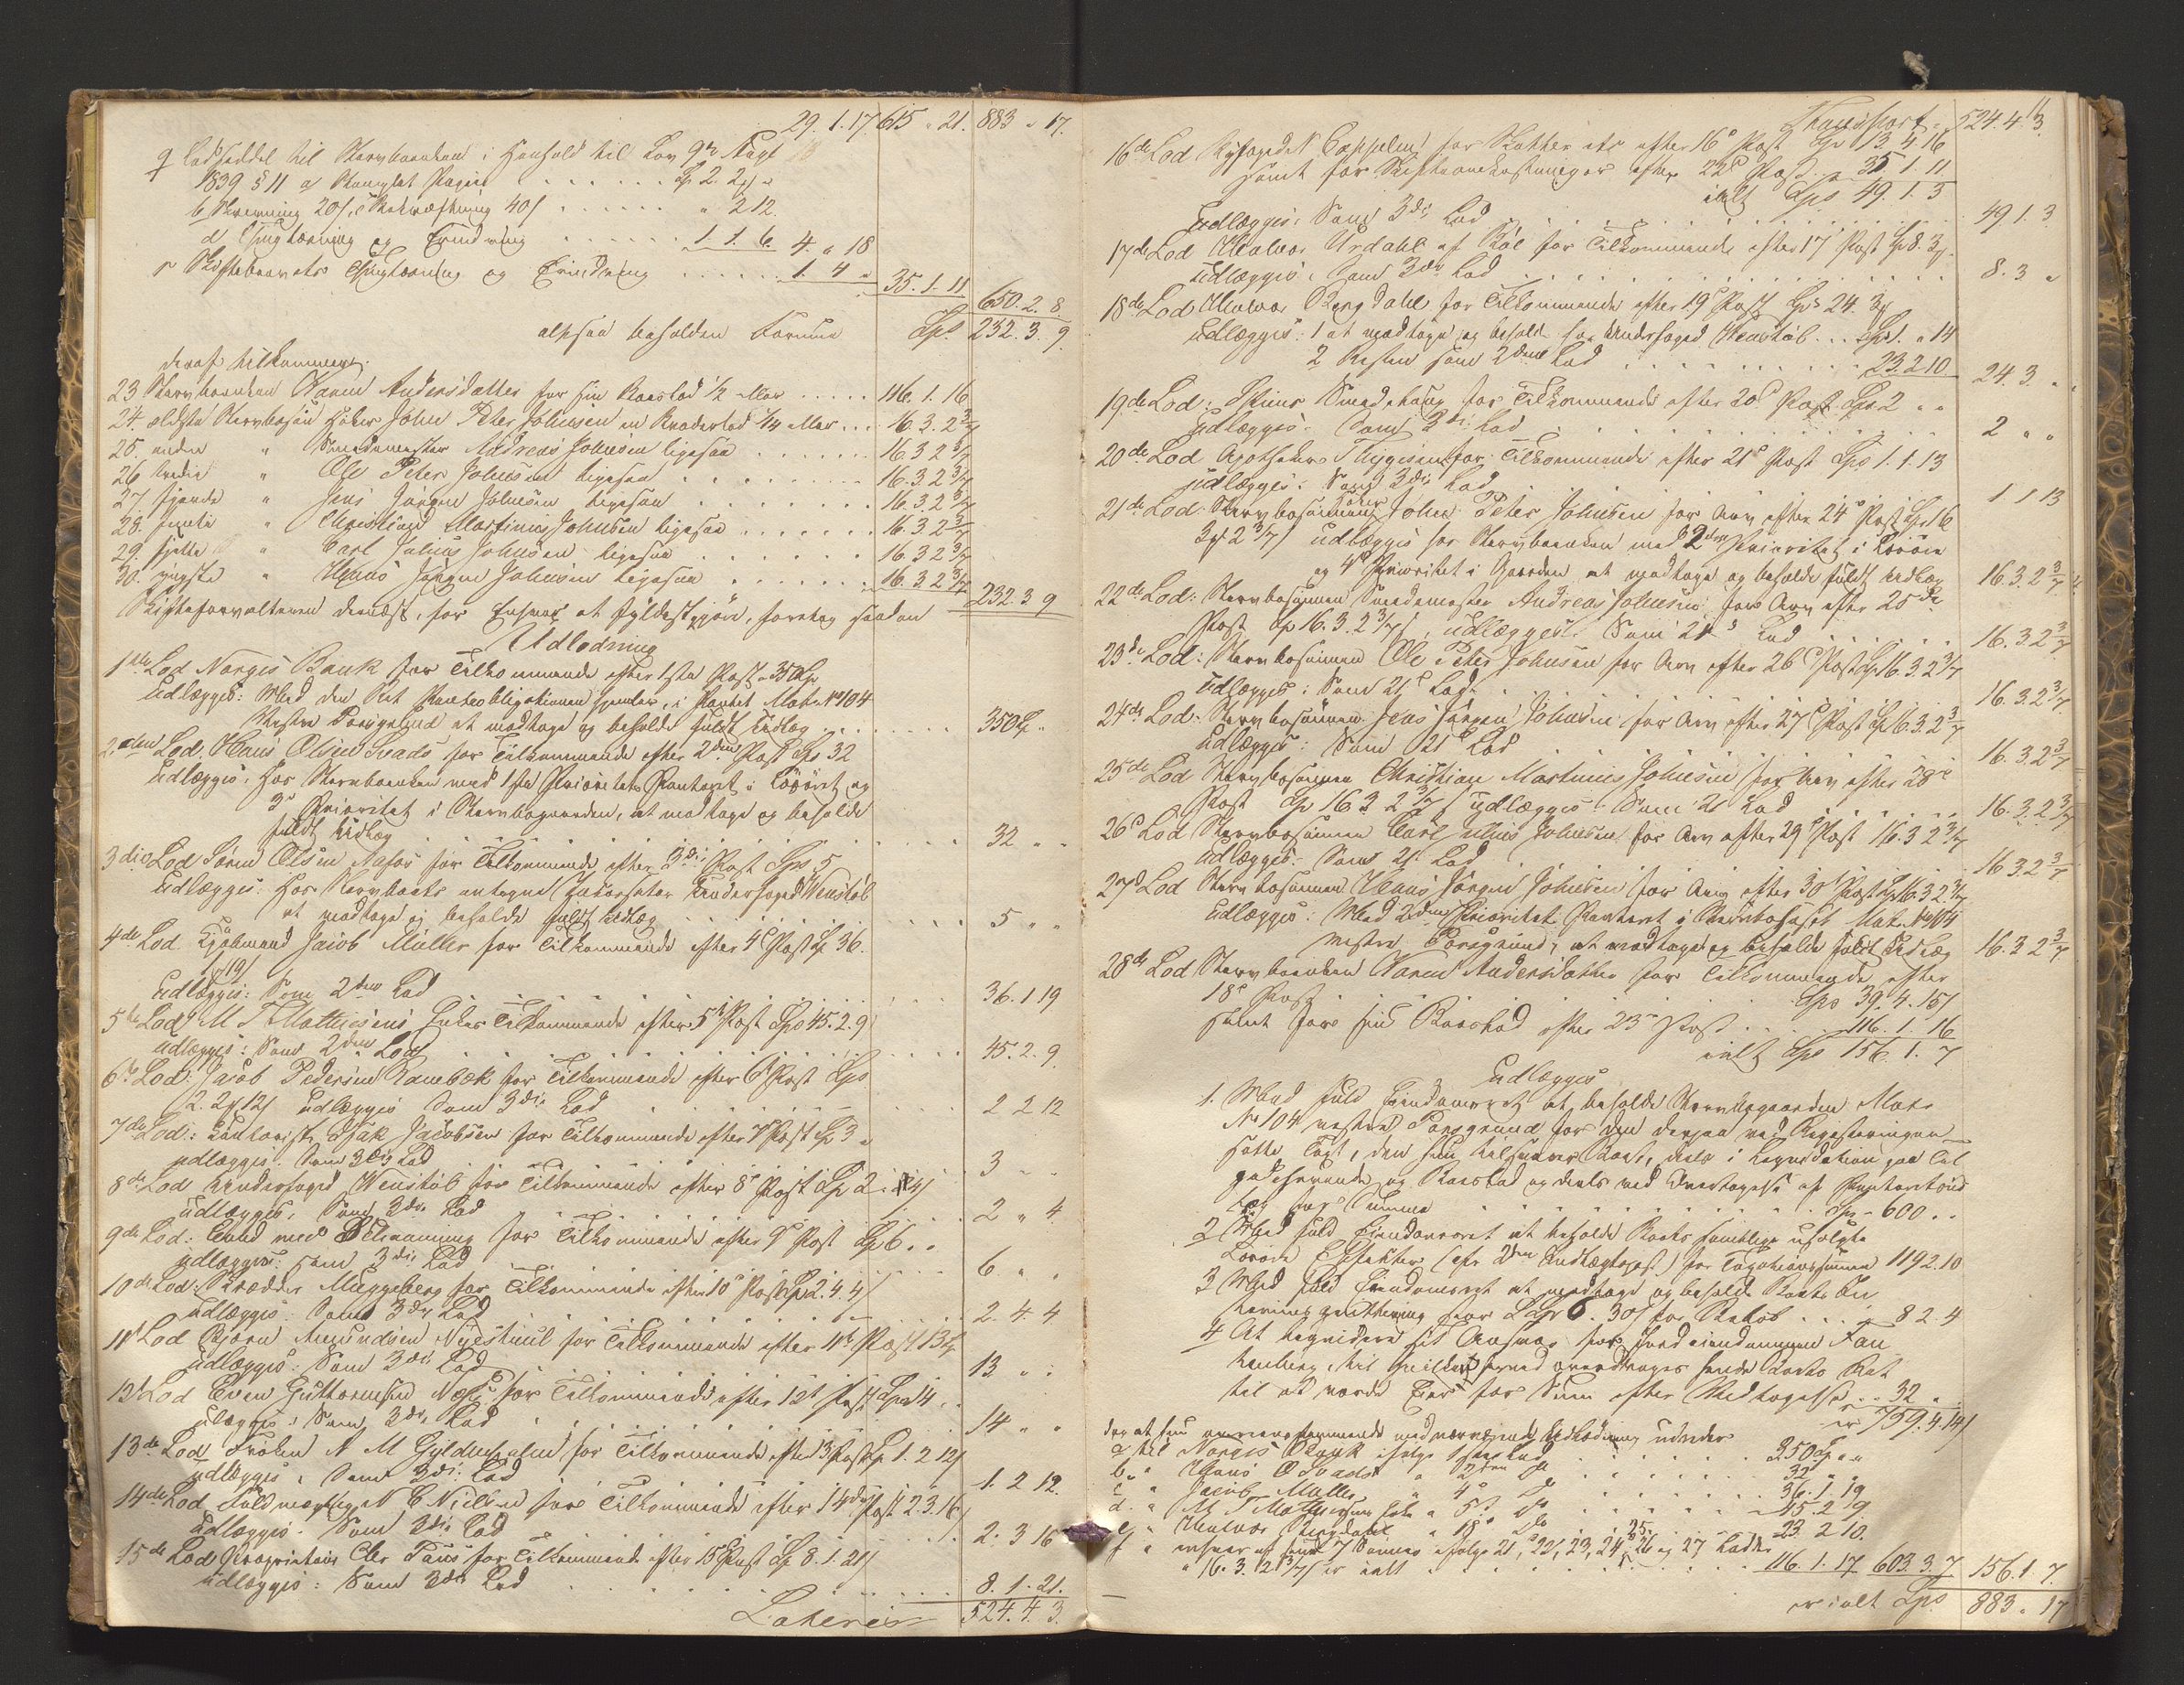 29. 1. 17 615 " 21. 883 " 17.
q Lodseddel til Stervboenken i Henhold til Lov 9de Augt
1839 § 11 a Stemplet Papir . . . Sp 2. 2 "
b Skrivning 20/, c Bekræftning 40/ . . . " 2 12.
d Thinglæsning og Grundning . . . 1. 1. 6. 4. " 18
r Skiftebrevets Thinglæsning og . . . 1. 4 " 35. 1. 11 650. 2. 8
altsaa beholden Formue Spd. 232. 3. 9.
deraf tilkommer:
23 Stervboenken Karen Andersdatter for sin Boeslod 1/2 eller . . . 116. 1. 16
24. ældste Stervbosøn John Peter Johnsen en Broderlod 1/14 eller . . . 16. 3. 2 3/7
25. anden " Smedemester Andreas Johnsen ligesaa . . . 16. 3 2 3/7
26 tredie " Ole Peter Johnsen ligesaa . . . 16. 3. 2 3/7
27 fjerde " Jens Jørgen Johnsen ligesaa . . . 16. 3. 2 3/7
28. femte " Christian Martinius Johnsen ligesaa . . . 16. 3. 2 3/7
29. sjette " Carl Julius Johnsen ligesaa . . . 16. 3 2 3/7
30. yngste " Hans Jørgen Johnsen ligesaa . . . 16. 3. 2 3/7 232. 3 9
Skifteforvalteren dernæst, for Enhver at fyldestgjøre, foretog saadan
Udlodning
1ste Lod Norges Bank for Tilkommende efter 1ste Post 350 Sp
Udlægges: Med den Ret Pantobligationen hjemler, i Pantet Matr No 104
Vestre Porsgrund at modtage og beholde fuldt Udlæg . . . 350 Sp "
2den Lod, Hans Olsen Svads for Tilkommende efter 2den Post Sps 32
Udlægges: Hos Stervboenken med 1ste Prioritets Panteret i Løsøret og
3die Prioritet i Stervbogaarden, at modtage og beholde
fuldt Udlæg . . . 32 " "
3die Lod Søren Olsen for Tilkommende efter 3die Post Sps 5
Udlægges: Hos Stervboets antagne Incassator Underfoged Wenstøb
at modtage og beholde fuldt Udlæg . . . 5 " "
4de Lod. Kjøbmand Jacob Müller for Tilkommende efter 4de Post Sp 36.
1. 19/
Udlægges: Som 2den Lod . . . 36. 1 19
5te Lod M T Mathiesens Enkes Tilkommende efter 5te Post Sps 45. 2. 9
udlægges: Som 2den Lod . . . 45. 2. 9.
6te Lod: Jacob Pedersen Rambek for Tilkommende efter 6te Post Sps
2. 2. 12/ Udlægges Som 3die Lod . . . 2 2 12
7de Lod: Isak Jacobsen for Tilkommende efter 7de Post Sp 3 "
udlægges. Som 3die Lod . . . 3 " "
8de Lod Underfoged Wenstøb for Tilkommende efter 8de Post Sp 2 " 4/
Udlægges, Som 3die Lod . . . 2 " 4
9de Lod: for Tilkommende efter 9de Post Sp 6 . .
udlægges: som 3die Lod . . . 6 " "
10de Lod: Skrædder Muggeberg for Tilkommende efter 10de Post Sp 2. 4. 4/
udlægges. Som 3die Lod . . . 2. 4. 4
11te Lod Bjørn Amundsen for Tilkommende efter 11te Post 13 Sp
Udlægges: Som 3die Lod . . . 13 " "
12te Lod Even Guttormsen for Tilkommende efter 12te Post Sps 14 . .
udlægges: Som 3die Lod . . . 14 " "
13de Lod Frøken N M Gyldenpalm for Tilkommende efter 13de Post Sp 1. 2 12/
Udlægges: Som 3die Lod . . . 1. 2 12.
14de Lod Fuldmægtig N C Nielsen for Tilkommende efter 14de Post 2. 3. 16/
Udlægges. Som 3die Lod . . . 2. 3 16
15de Lod Proprietair Cler Paus for Tilkommende efter 15de Post Sp 8. 1. 21/
Udlægges: Som 3die Lod . . . 8. 1. 21.
Lateris 524. 4. 3.
Transport 524. 4. 3.
16de Lod Byfoged N Cappelen for Skatter etc efter 16de Post Sp 13. 4. 16
samt for Skifteomkostninger efter 22de Post . . 35. 1. 11
ialt Sps 49. 1. 3
Udlægges: Som 3die Lod . . . 49 1. 3
17de Lod Halvor Urdahl af Bøe for Tilkommende efter 17de Post Sp 8. 3
udlægges: Som 3die Lod . . . 8. 3 "
18de Lod Halvor Bergdahl for Tilkommende efter 19de Post Sps 24. 3
Udlægges: 1 at modtage og beholde hos Underfoged Wenstøb . . . Sp 1. " 14
2 Resten som 2den Lod . . . 23. 2 10 24. 3. "
19de Lod: Smedehaug for Tilkommende efter 20de Post. Sps 2 " "
Udlægges. Som 3die Lod . . . 2 " "
20de Lod Apotheker Thygesen for Tilkommende efter 21de Post Sps 1. 1. 13
udlægges: Som 3die Lod . . . 1 1 13
21de Lod: Stervbosønnen John Peter Johnsen for Arv efter 24de Post Sps 16
3. 2 3/7/ udlægges hos Stervboenken med 2den Prioritet i Løsøre
og 4de Prioritet i Gaarden at modtage og beholde fuldt Udlæg 16. 3. 2 3/7
22de Lod: Stervbosønnen Smedemester Andreas Johnsen for Arv efter 25de
Post Sp 16. 3. 2 3/7/, udlægges: Som 21de Lod . . . 16. 3. 2 3/7
23de Lod: Stervbosønnen Ole Peter Johnsen for Arv efter 26de Post Sp 16. 3. 2 3/7
Udlægges: Som 21de Lod . . . 16. 3. 2 3/7
24de Lod: Stervbosønnen Jens Jørgen Johnsen for Arv efter 27de Post Sp 16. 3. 2 3/7
udlægges: Som 21de Lod . . . 16. 3. 2 3/7
25de Lod Stervbosønnen Christian Martinius Johnsen for Arv efter 28de
Post Sp 16. 3 2 3/7/ Udlægges: Som 21 Lod . . . 16. 3. 2 3/7
26de Lod Stervbosønnen Carl Julius Johnsen for Arv efter 29de Post 16. 3 2 3/7
udlægges: Som 21. Lod . . . 16. 3. 2 3/7
27de Lod Stervbosønnen Hans Jørgen Johnsen for Arv efter 30te Post Sp 16. 3 2 3/7
Udlægges: Med Prioritets Panteret i Stervbohuset Matr. No 104
vestre Porsgrund, at modtage og beholde fuldt Udlæg 16. 3 2 3/7
28de Lod Stervboenken Karen Andersdatter for Tilkommende efter
18de Post . . . Sps 39. 4. 15/
samt for sin Boeslod efter 23de Post . . . 116. 1. 16
ialt Sps 156. 1. 7
Udlægges
1. Med fuld Eiendomsret at beholde Stervbogaarden Matr
No 104 vestre Porsgrund for den derpaa ved Registeringen
satte Taxt, den hun tilsvarer Boet, dels i Liqvidation paa Til
godehavende og Boeslod og dels ved Overtagelse af
Læg Summa . . . Sp 600 . .
2 Med fuld Eiendomsret at beholde Boets samtlige usolgte
Løsøre Effekter (efr 2den Indtægtspost) for Taxationssummen 119 2. 10
3 Med fuld Eiendomsret at modtage og beholde Boets
for Sp 6. 30/ for . . . 8 2. 4
4 At liqvidere sit Ansvar for Jordeiendommen
til hvilken overdrages hende Boets Ret
til at vorde Eier for Sum efter Vedtagelse . . 32 "
er 759. 4. 14/
dog at hun med nærværende Udlodning udreder
a til Norges Bank ifølge 1ste Lod . . . 350 Sp " "
b " Hans O Svads " 2den do . . . 32 " "
c " Jacob Müller " 4de do . . . 36. 1. 19
d " M T Mathiesens Enke " 5te do . . . 45. 2 9
e " Halvor Bergdahl " 18de do . . . 23. 2 10.
f " enhver af sine 7 Sønner ifølge 21, 22, 23, 24, 25, 26 og 27 Lodder
" 16. 3. 2 3/7/ er ialt . . . 116. 1. 17 603. 3. 7 156. 1 7.
er ialt Sps 883 " 17